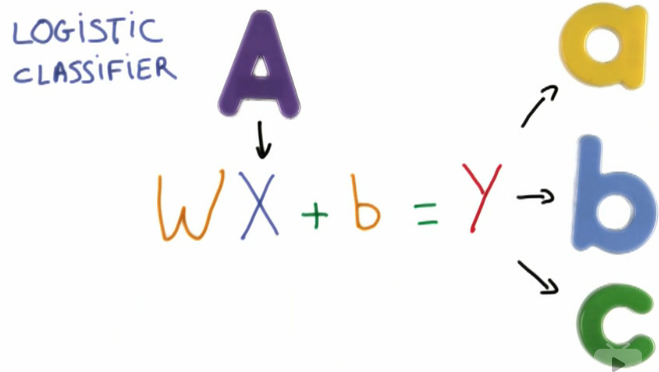 LOGISTIC
CLASSIFIER
A
WX + b = Y
a
b
c